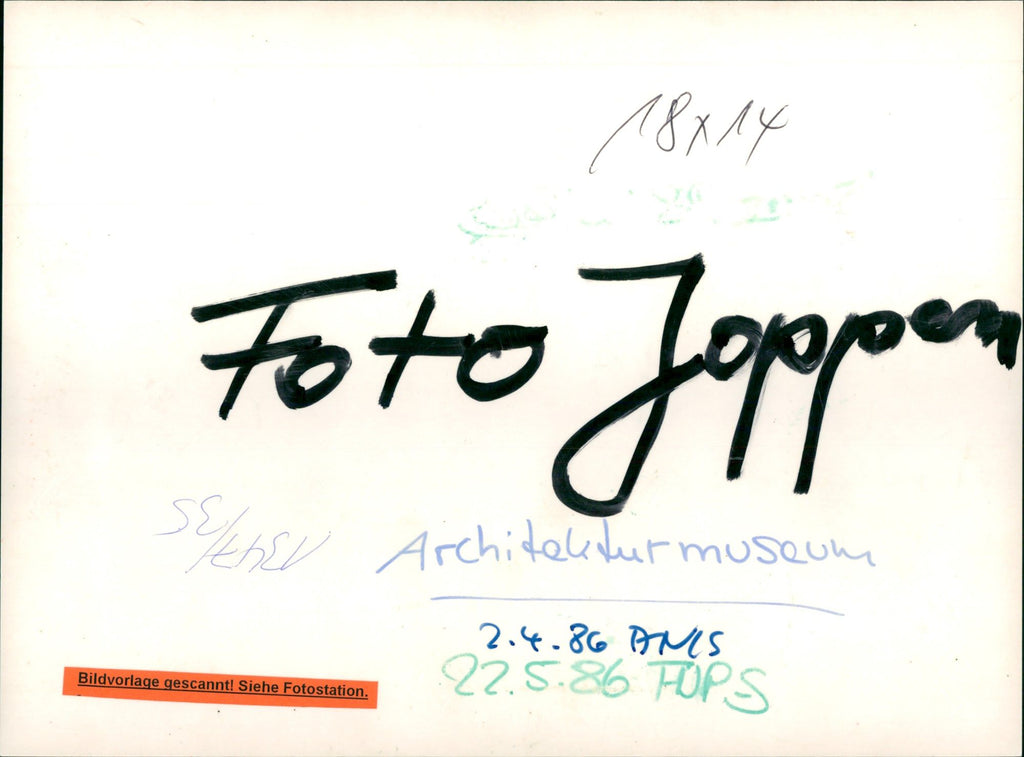 18x14
Foto Joppen
Architekturmuseum
2.4.86
22.5.86
Bildvorlage gescannt! Siehe Fotostation.